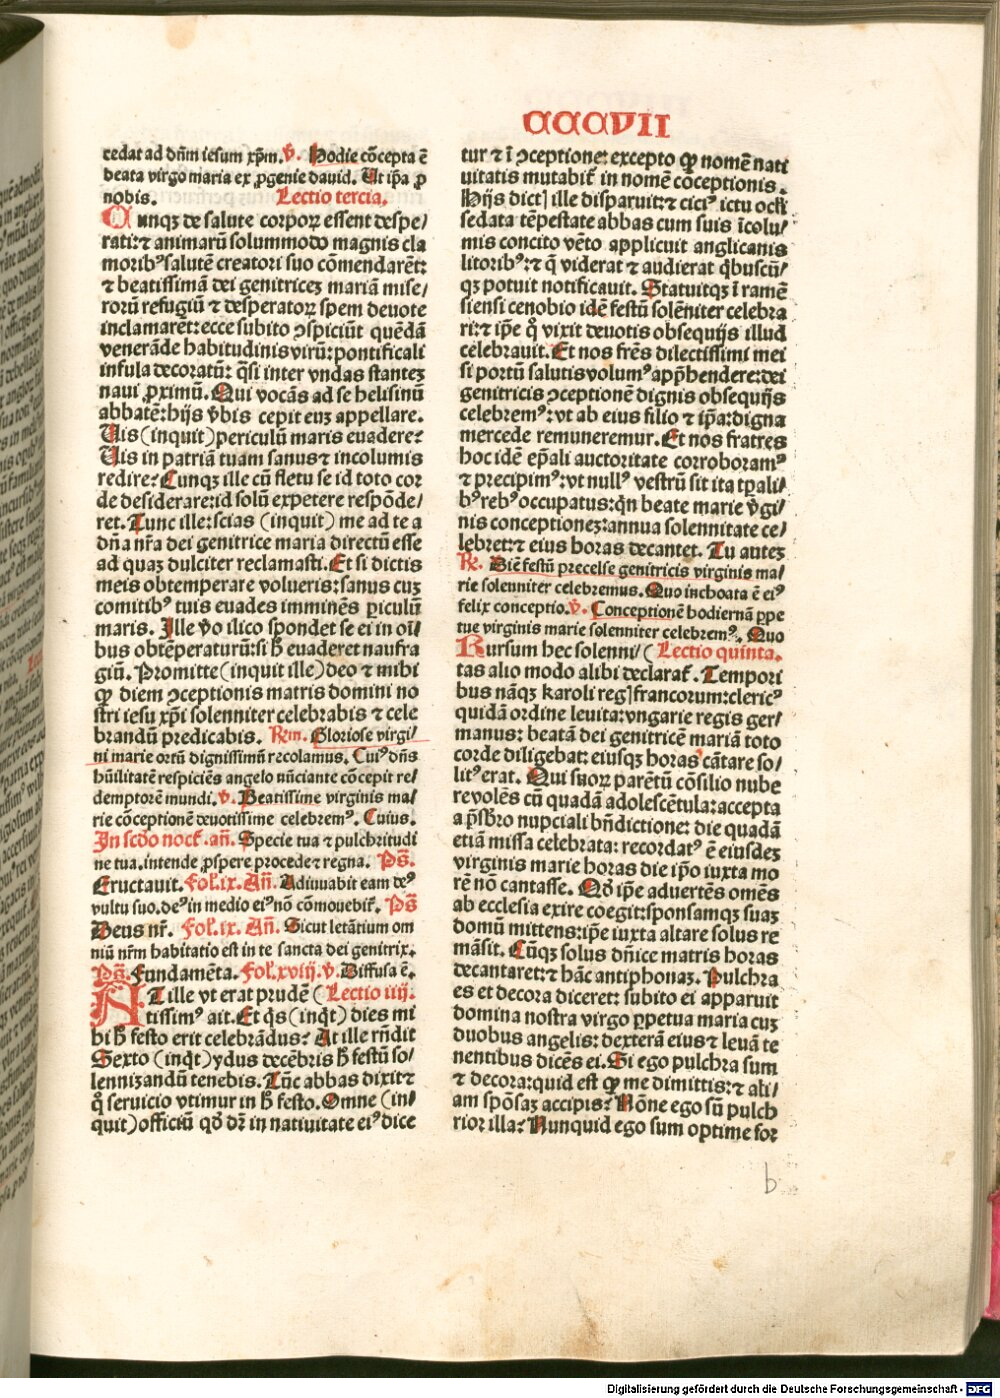 CCCVII
cedat ad dñm iesum xp̄m. ꝟ. Hodie cõcepta ē
beata virgo maria ex ꝓgenie dauid. Ut ip̄a ꝓ
nobis. Lectio tercia.
Cunqꝫ de salute corpoꝝ essent despe/
rati: ⁊ animarũ solummodo magnis cla
moribꝰ salutē creatori suo cõmendarēt:
⁊ beatissimã dei genitricez mariã mise/
rorũ refugiũ ⁊ desperatoꝝ spem deuote
inclamarēt: ecce subito ꝯspiciũt quēdã
venerãde habitudinis virũ: pontificali
infula decoratũ: q̃si inter vndas stantez
naui ꝓximũ. Qui vocãs ad se helisinũ
abbatē: hijs ꝟbis cepit euz appellare.
Uis (inquit) periculũ maris euadere?
Uis in patriã tuam sanus ⁊ incolumis
redire? Cunqꝫ ille cũ fletu se id toto cor
de desiderare: id solũ expetere respõde/
ret. Tunc ille: scias (inquit) me ad te a
dña nr̃a dei genitrice maria directũ esse
ad quaz dulciter reclamasti. Et si dictis
meis obtemperare volueris: sanus cuz
comitibꝰ tuis euades imminēs ꝑiculũ
maris. Ille ꝟo ilico spondet se ei in oĩ/
bus obtēperaturũ: si h̄ euaderet naufra
giũ. Promitte (inquit ille) deo ⁊ mihi
ꝙ diem ꝯceptionis matris domini no
stri iesu xp̄i solenniter celebrabis ⁊ cele
brandũ predicabis. Rm̃. Gloriose virgi/
ni marie ortũ dignissimũ recolamus. Cuiꝰ dñs
hũilitatē respiciēs angelo nũciante cõcepit re/
demptorē mundi. ꝟ. Beatissime virginis ma/
rie cõceptionē deuotissime celebremꝰ. Cuius.
In scďo noct̃. añ. Specie tua ⁊ pulchritudi
ne tua. intende ꝓspere procede ⁊ regna. Ps̃.
Eructauit. Fol̃. ix. Añ. Adiuuabit eam deꝰ
vultu suo. deꝰ in medio eiꝰ nõ cõmouebit̃. Ps̃
Deus nr̃. Fol̃. ix. Añ. Sicut letãtium om
niũ nr̃m habitatio est in te sancta dei genitrix.
Ps̃. Fundamēta. Fol̃. xviij. ꝟ. Diffusa ē.
AT ille vt erat prudē (Lectio iiij.
tissimꝰ ait. Et q̃s (inq̃t) dies mi
hi h̄ festo erit celebrãdus? At ille rñdit
Sexto (inq̃t) ydus decēbris h̄ festũ so/
lennizandũ tenebis. Tũc abbas dixit ⁊
q̊ seruicio vtimur in h̄ festo. Omne (in/
quit) officiũ qd̛ dr̃ in natiuitate eiꝰ dice
tur ⁊ ĩ ꝯceptione: excepto ꝙ nomē nati
uitatis mutabit̃ in nomē cõceptionis.
Hijs dictꝭ ille disparuit: ⁊ citiꝰ ictu oc̃li
sedata tēpestate abbas cum suis ĩcolu/
mis concito vēto applicuit anglicanis
litoribꝰ: ⁊ q̃ viderat ⁊ audierat q̃buscũ/
qꝫ potuit notificauit. Statuitqꝫ ĩ ramē
siensi cenobio idē festũ solēniter celebra
ri: ⁊ ip̄e q̊ vixit deuotis obsequijs illud
celebrauit. Et nos fr̃es dilectissimi mei
si portũ salutis volumꝰ app̃hendere: dei
genitricis ꝯceptionē dignis obsequijs
celebremꝰ: vt ab eius filio ⁊ ip̄a: digna
mercede remuneremur. Et nos fratres
hoc idē ep̄ali auctoritate corroboramꝰ
⁊ precipimꝰ: vt nullꝰ vestrũ sit ita tꝑali/
bꝰ rebꝰ occupatus: qñ beate marie ꝟgi/
nis conceptionez: annua solennitate ce/
lebret: ⁊ eius horas decantet. Tu autez
R̃. Diē festũ precelse genitricis virginis ma/
rie solenniter celebremus. Quo inchoata ē eiꝰ
felix conceptio. ꝟ. Conceptionē hodiernã ꝑpe
tue virginis marie solenniter celebremꝰ. Quo
Rursum hec solenni/ (Lectio quinta.
tas alio modo alibi declarat̃. Tempori
bus nãqꝫ karoli regꝭ francorum: clericꝰ
quidã ordine leuita: vngarie regis ger/
manus: beatã dei genitricē mariã toto
corde diligebat: eiusqꝫ horas cãtare so/
litꝰ erat. Qui suoꝝ parētũ cõsilio nube
re volēs cũ quadã adolescētula: accepta
a p̃sbr̃o nupciali bñdictione: die quadã
etiã missa celebrata: recordatꝰ ē eiusdez
virginis marie horas die ip̄o iuxta mo
rē nõ cantasse. Qd̛ ip̄e aduertēs omēs
ab ecclesia exire coegit: sponsamqꝫ suaz
domũ mittens: ip̄e iuxta altare solus re
mãsit. Cũqꝫ solus dñice matris horas
decantaret: ⁊ hãc antiphonaz. Pulchra
es et decora diceret: subito ei apparuit
domina nostra virgo ꝑpetua maria cuz
duobus angelis: dexterã eius ⁊ leuã te
nentibus dicēs ei. Si ego pulchra sum
⁊ decora: quid est ꝙ me dimittis: ⁊ ali/
am spõsaz accipis? Nõne ego sũ pulch
rior illa? Nunquid ego sum optime for
b
Digitalisierung gefördert durch die Deutsche Forschungsgemeinschaft - DFG